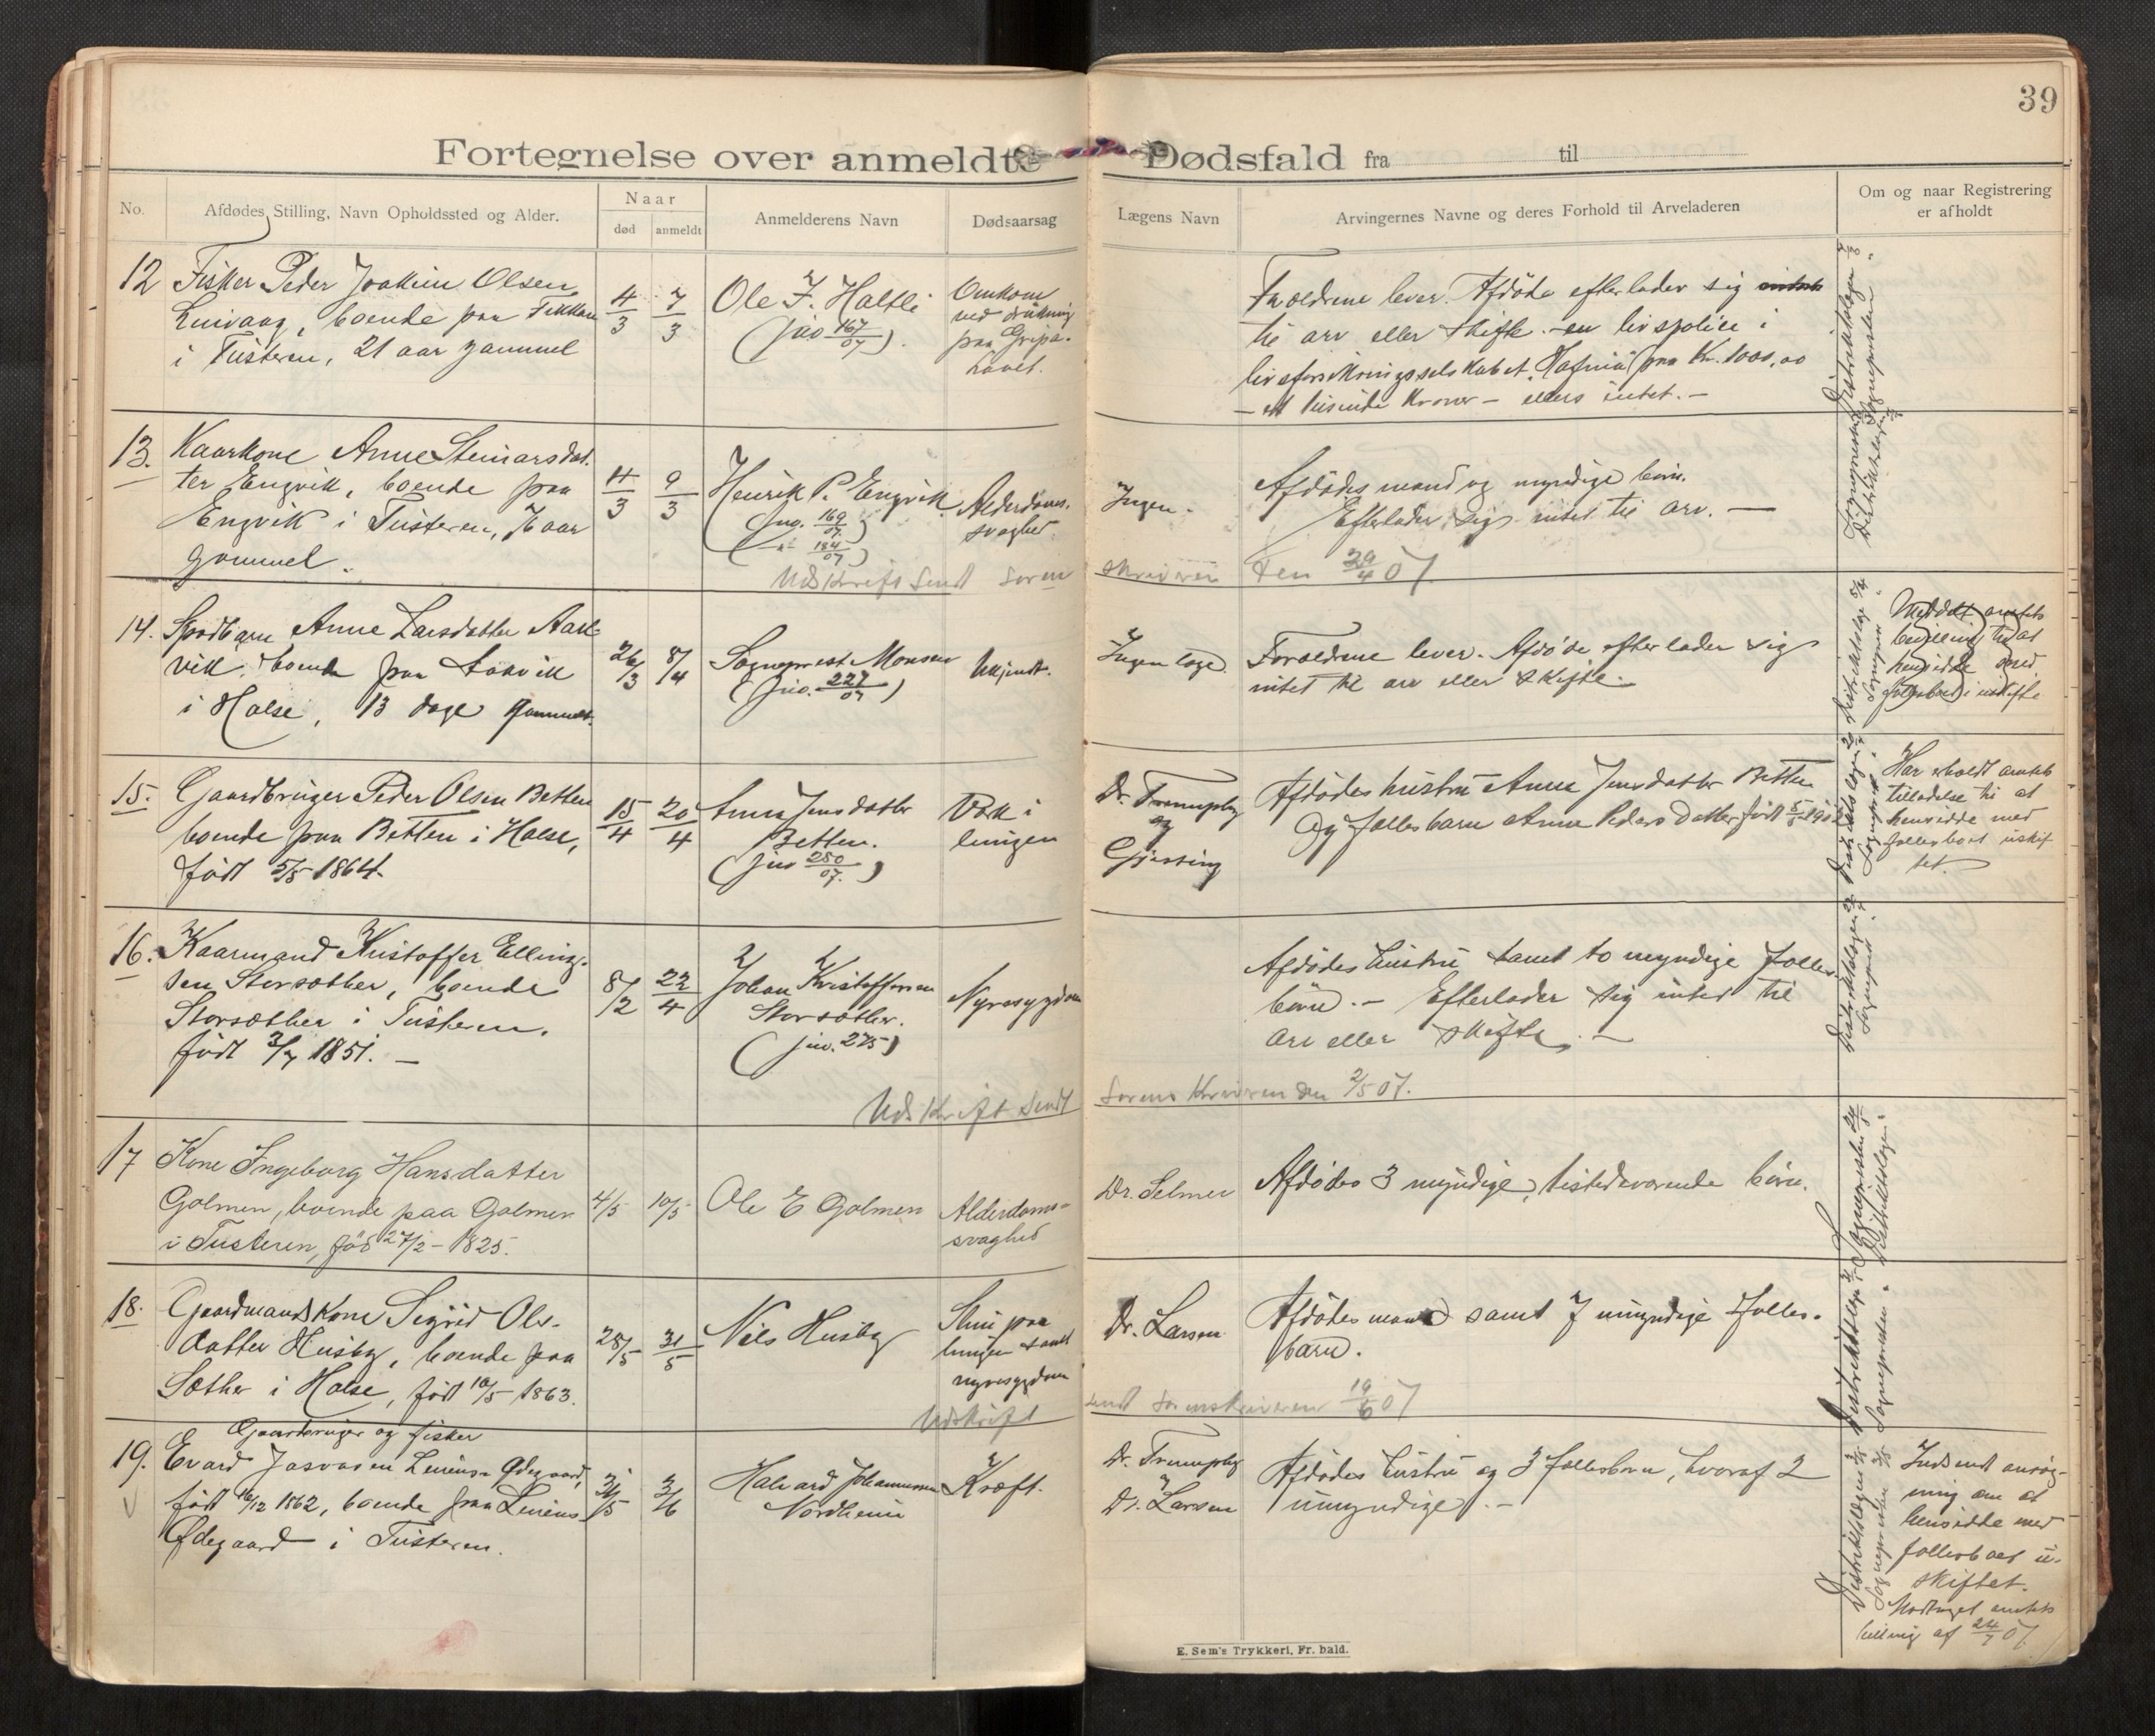 39
Fortegnelse over anmeldte Dødsfald fra til
No.
Afdødes Stilling, Navn Opholdssted og Alder.
Naar
død
anmeldt
Anmelderens Navn
Dødsaarsag
Lægens Navn
Arvingernes Navne og deres Forhold til Arveladeren
Om og naar Registrering
er afholdt
12 Fisker Peder Joakim Olsen
boende paa
i Tusteren, 21 aar gammel
4/3 7/3
Ole J. Haltli
(jno 167/07).
Omkom
ved drukning
paa Gripa-
havet.
Forældrene lever. Afdøde efterlader sig
til arv eller skifte en livspolice i
livsforsikringsselskabet "Hafnia" paa Kr. 1000,00
- et tusinde kroner - ellers intet. -
13. Kaarkone Anne Steinarsdat-
ter Engvik, boende paa
Engvik i Tusteren, 76 aar
gammel.
4/3 9/3
Henrik P. Engvik
(jno. 169/07)
( " 184/07)
Alderdoms-
svaghed.
Ingen.
Afdødes mand og myndige børn.
Efterlader sig intet til arv. —
Udskrift sendt Soren
skriveren den 29/4 07
14. Spædbarn Anne Larsdatter Aarsvik
vik, boende paa
i Halse, 13 dage gammelt.
26/3 8/4
Sogneprest Monsen
(jno. 227/07)
Ukjendt.
Ingen læge.
Forældrene lever. Afdøde efterlader sig
intet til arv eller skifte. -
Meddelt amtets
bevilling til at
hensidde med
fællesboet i uskifte
15. Gaardbruger Peder Olsen Betten
boende paa Betten i Halse,
født 5/5 1864.
15/4 20/4
Anne Jensdatter
Betten.
(jno 250/07.)
Værk i
lungen
Dr. Trampby
og
Gjessing
Afdødes hustru Anne Jensdatter Betten
og fællesbarn Anne Pedersdatter født
Har erholdt amtets
tilladelse til at
hensidde med
fællesboet uskif
tet.
16. Kaarmand Kristoffer Elling-
sen Storsæther, boende
Storsæther i Tusteren.
født 3/7 1851. —
8/2 22/4
Johan Kristoffersen
Storsæther.
(jno. 275)
Nyresygdom
Afdødes hustru samt to myndige fælles-
børn. - Efterlader sig intet til
arv eller skifte. -
Udskrift sendt
Sorenskriveren den 2/5 07.
17 Kone Ingeborg Hansdatter
Golmen, boende paa Golmen
i Tusteren, født 27/2 - 1825.
4/5 10/5
Ole E Golmen
Alderdoms-
svaghed
Dr. Selmer
Afdødes 3 myndige, tilstedeværende børn.
18. Gaardmandskone Sigrid Ols-
datter Husby, boende paa
Sæther i Halse, født 10/5 1863.
28/5 31/5
Nils Husby
Slim paa
lungen samt
nyresygdom
Dr. Larsen
Afdødes mand samt 7 umyndige fælles-
barn.
Udskrift
sendt sorenskriveren 19/6 07
Gaardbruger og fisker
19. Evard
født 16/12 1862, boende paa
Ødegaard i Tusteren.
31/5 3/6
Halvard Johannesen
Nordheim
Kræft.
Dr. Trampby
Dr. Larsen
Afdødes hustru og 3 fællesbørn, hvoraf 2
umyndige. -
Indsendt ansøg-
ning om at
hensidde med
fællesboet u-
skiftet.
Modtaget amtets
billing af 24/7 07
E. Sem's Trykkeri, Fr.hald.